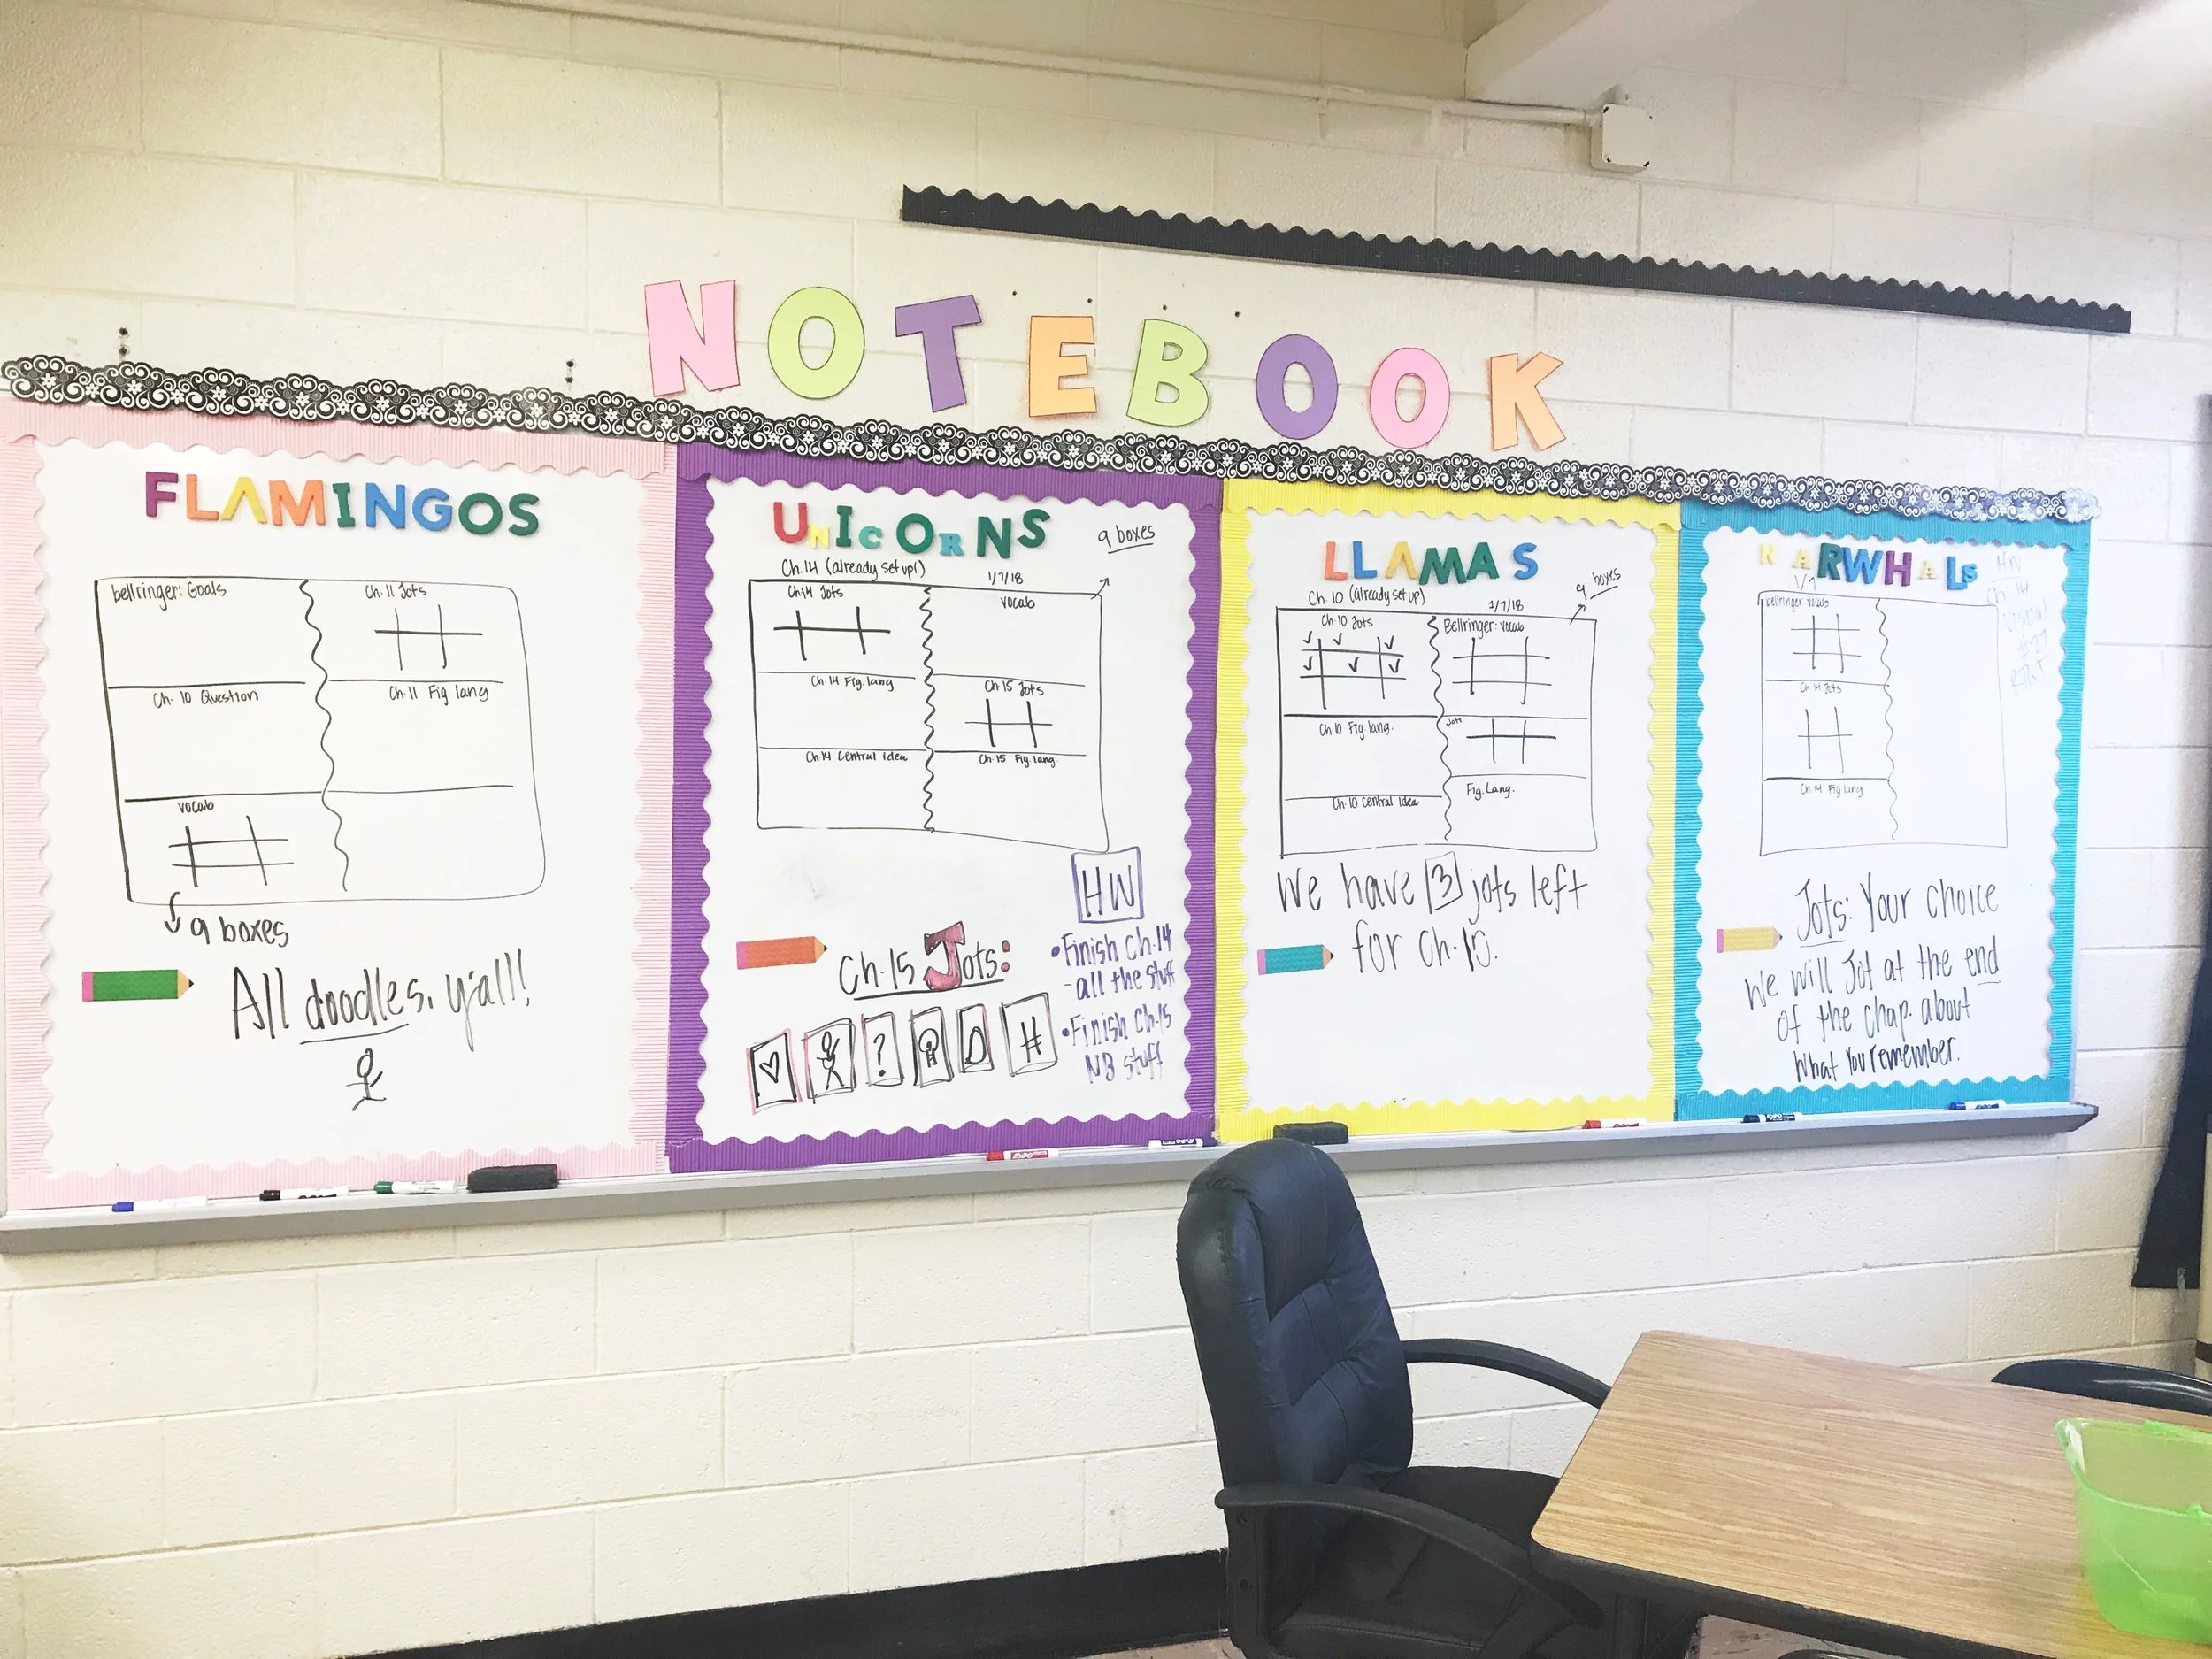 NOTEBOOK
FLAMINGOS
bellringer: Goals
Ch. 11 Jots
Ch. 10 Question
Ch. 11 Fig. lang
vocab
9 boxes
All doodles, y'all!
UNICORNS
9 boxes
Ch. 14 (already set up!)
1/7/18
Ch 14 Jots
vocab
Ch 14 Fig. lang
Ch 15 Jots
Ch 14 Central Idea
Ch. 15 Fig. lang
HW
Ch. 15 Jots:
• Finish Ch. 14
- all the stuff
• Finish Ch. 15
NB stuff
?
#
LLAMAS
9 boxes
Ch. 10 (already set up)
1/7/18
Ch. 10 Jots
Bellringer: vocab
Ch. 10 Fig. lang.
Jots
Ch. 10 Central Idea
Fig. Lang.
We have 3 jots left
for Ch. 10.
NARWHALS
1/7
HW
Ch 14
Visual
bellringer: vocab
Ch 14 Jots
Ch. 14 Fig lang
Jots: Your choice
We will Jot at the end
of the chap. about
what you remember.
EXPO